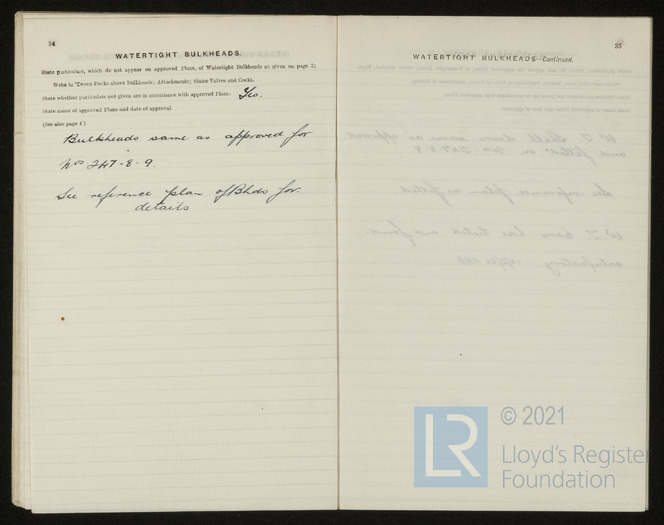 34
WATERTIGHT BULKHEADS.
State particulars, which do not appear on approved Plans, of Watertight Bulkheads as given on page 3;
Webs in 'Tween Decks above Bulkheads; Attachments; Sluice Valves and Cocks.
State whether particulars not given are in accordance with approved Plans. Yes.
State name of approved Plans and date of approval.
(See also page 4)
Bulkheads same as approved for
Nos 247-8-9.
See reference plan of Bhds for
details
35
WATERTIGHT BULKHEADS—Continued.
LR
© 2021
Lloyd's Register
Foundation